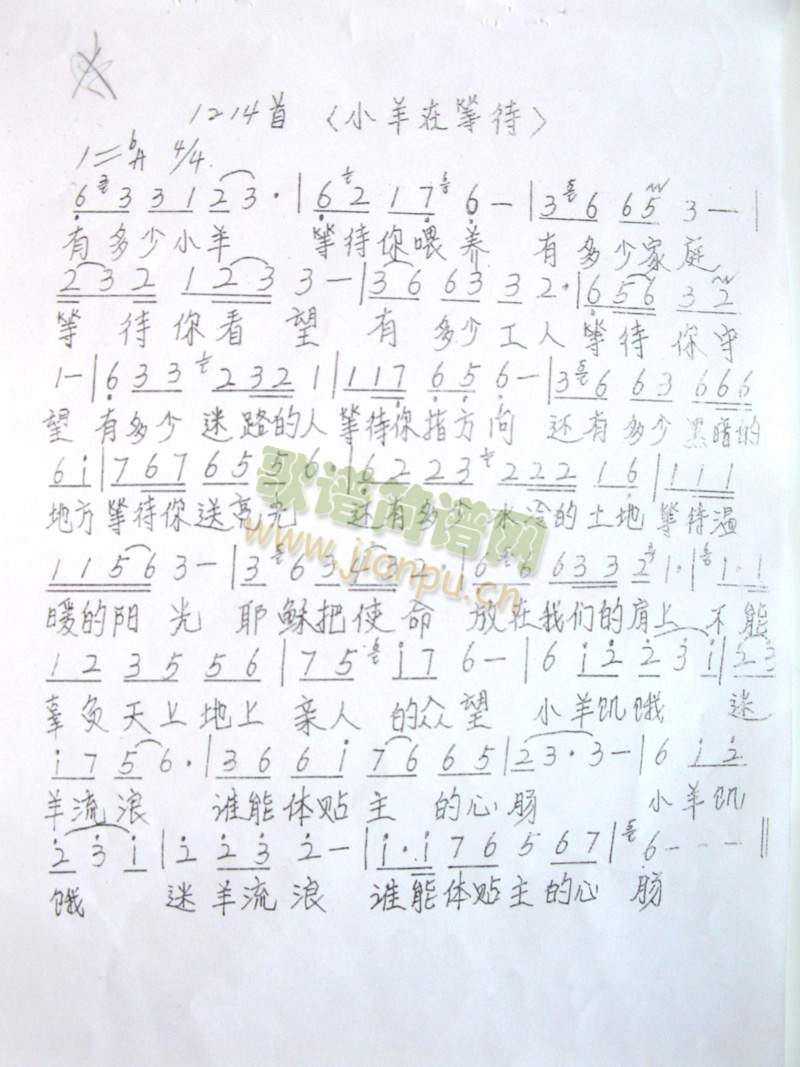 1214首 〈小羊在等待〉
1=bA 4/4
6 3 3 1 2 3· | 6 2 1 7 6 — | 3 6 6 5 3 — |
有多少小羊 等待你喂养 有多少家庭
2 3 2 1 2 3 3 — | 3 6 6 3 3 2· | 6 5 6 3 2
等待你看望 有多少工人等待你守
1 — | 6 3 3 2 3 2 1 | 1 1 7 6 5 6 — | 3 6 6 3 6 6 6
望 有多少迷路的人等待你指方向 还有多少黑暗的
6 i | 7 6 7 6 5 5 6 | 6 2 2 3 2 2 2 1 6 | 1 1 1
地方等待你送亮光 还有多少水冷的土地等待温
歌谱简谱网
www.jianpu.cn
1 1 5 6 3 — | 3 6 3 4 3 2· | 6 6 6 3 3 2 1· | 1· 1
暖的阳光 耶稣把使命 放在我们的肩上 不能
1 2 3 5 5 6 | 7 5 i 7 6 — | 6 i 2 2 3 i | 2 3
辜负天上地上亲人的众望 小羊饥饿 迷
i 7 5 6· | 3 6 6 i 7 6 6 5 | 2 3· 3 — | 6 i 2
羊流浪 谁能体贴主的心肠 小羊饥
2 3 i | 2 2 3 2 — | i· i 7 6 5 6 7 | 6 - - - ‖
饿 迷羊流浪 谁能体贴主的心肠